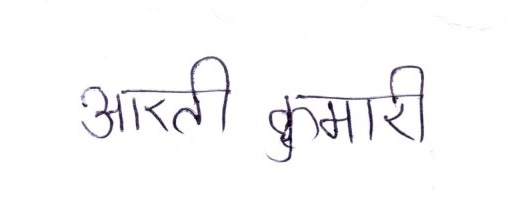 आरती कुमारी